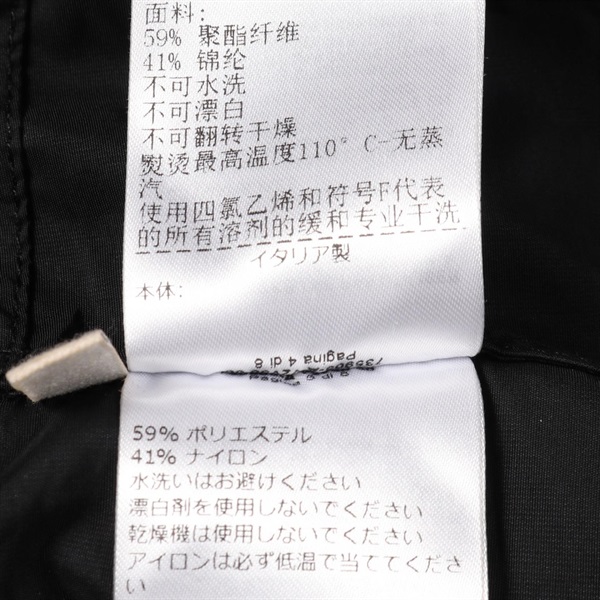 面料:
59% 聚酯纤维
41% 锦纶
不可水洗
不可漂白
不可翻转干燥
熨烫最高温度110° C-无蒸
汽
使用四氯乙烯和符号F代表
的所有溶剂的缓和专业干洗
イタリア製
本体:
Pagina 4 di 8
59% ポリエステル
41% ナイロン
水洗いはお避けください
漂白剤を使用しないでください
乾燥機は使用しないでください
アイロンは必ず低温で当ててくださ
い